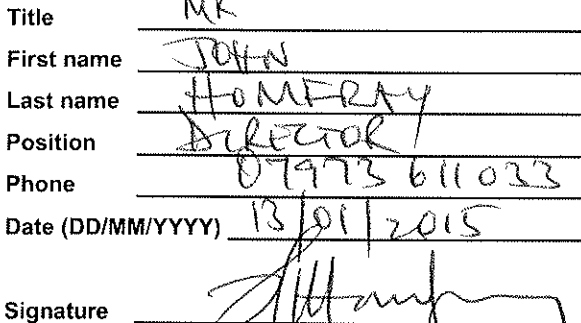 Title MR
First name JOHN
Last name HOMFRAY
Position DIRECTOR
Phone 07973 611033
Date (DD/MM/YYYY) 13/01/2015
Signature